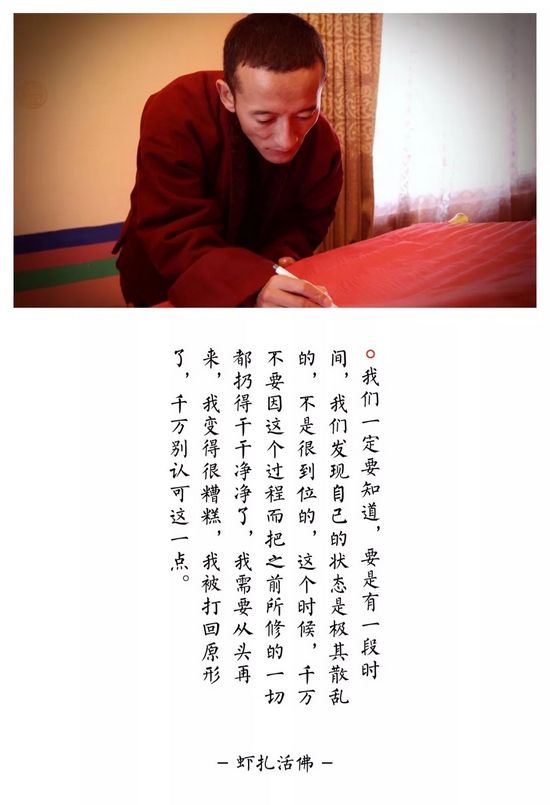 我们一定要知道，要是有一段时
间，我们发现自己的状态是极其散乱
的，不是很到位的，这个时候，千万
不要因这个过程而把之前所修的一切
都扔得干干净净了，我需要从头再
来，我变得很糟糕，我被打回原形
了，千万别认可这一点。
– 虾扎活佛 –